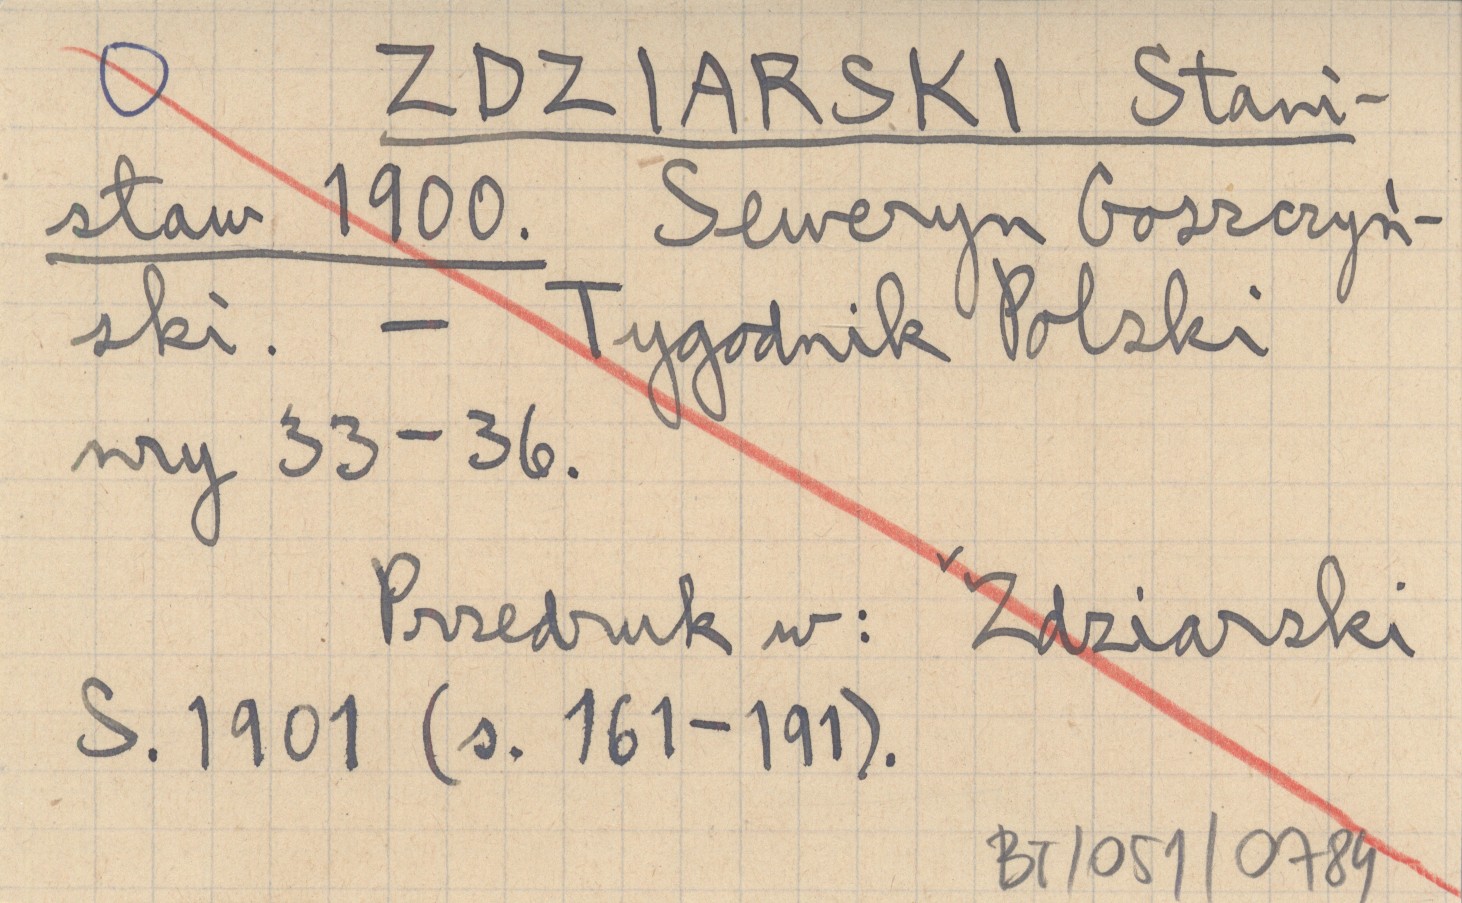 ZDZIARSKI Stani-
sław 1900. Seweryn Goszczyń-
ski. – Tygodnik Polski
nry 33–36.
Przedruk w: Zdziarski
S. 1901 (s. 161–191).
BT/051/0784